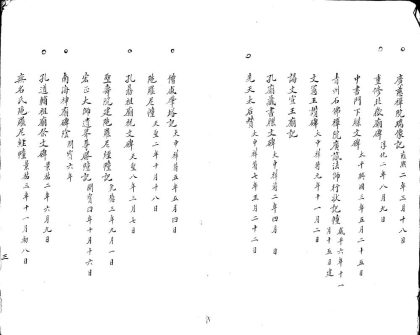 廣慈禪院瑞像記
重修北嶽廟碑 淳化二年八月
中書門下牒文碑 太平興國三年五月二十五日
青州石佛禪院廣 法師行狀記幢 咸平六年十一月十五日建
文宣王贊碑 大中祥符元年十一月二日
謁文宣王廟記
孔廟 經文碑 大中祥符二年 月二日
先天太后贊 大中祥符七年正月二十二日
僧 塔記 大中祥符五年五月四日
陀羅尼幢 天聖二年十月十八日
孔 祖廟祝文碑 天聖八年三月七日
聖壽院建陀羅尼經幢記 三年九月一日
大師 塔記 開寶四年十月十六日
南海神廟碑陰 開寶六年
孔道輔祖廟祭文碑 景祐二年六月九日
無名氏陀羅尼經幢 景祐三年十一月初八日
三